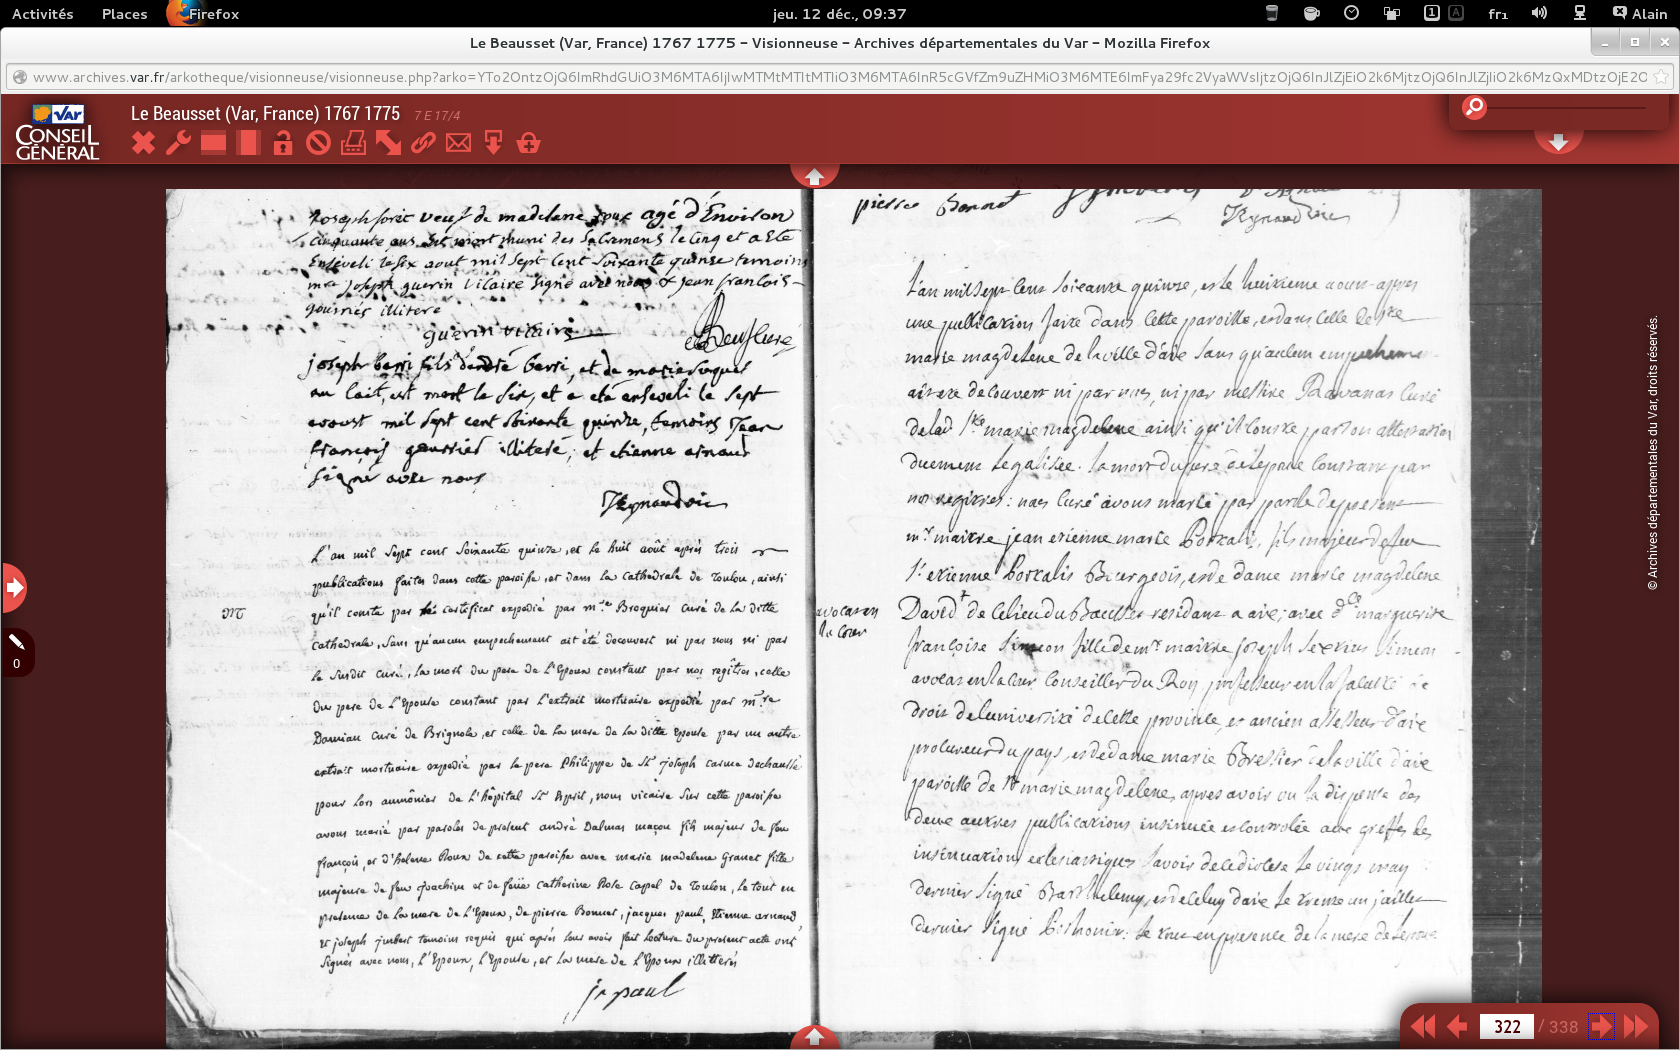 Activités Places Firefox jeu. 12 déc., 09:37 1 A fr₁ Alain
Le Beausset (Var, France) 1767 1775 – Visionneuse – Archives départementales du Var – Mozilla Firefox
www.archives.var.fr/arkotheque/visionneuse/visionneuse.php?arko=
VAR
CONSEIL
GÉNÉRAL
Le Beausset (Var, France) 1767 1775 7 E 17/4
joseph foret veuf de madelene roux agé d'Environ
cinquante ans est mort muni des sacremens le cinq et a Eté
Enseveli le six aout mil sept cent soixante quinze temoins
mre joseph guerin vicaire signé avec nous & jean francois
gourriés illiteré
guerin vicaire
joseph berri fils d'andré berri, et de marie
au lait, est mort le six, et a eté enseveli le sept
aoust mil sept cent soixante quinze, temoins Jean
françois gourriés illiteré, et etienne arnaud
signé avec nous
Reynaudvic
L'an mil sept cent soixante quinze, et le huit août après trois
publications faites dans cette paroisse, et dans la cathedrale de Toulon, ainsi
MT
qu'il conste par le certificat expedié par mre Broquier curé de la ditte
cathedrale, sans qu'aucun empechement ait été decouvert ni par nous ni par
le susdit curé, la mort du pere de l'Epoux constant par nos regîtres, celle
du pere de l'Epouse constant par l'extrait mortuaire expedié par mre
Damian curé de Brignole, et celle de la mere de la ditte Epouse par un autre
extrait mortuaire expedié par le pere Philippe de St joseph carme dechaussé
pour lors aumônier de l'hôpital St Esprit, nous vicaire sur cette paroisse
avons marié par paroles de present andré Dalmas maçon fils majeur de feu
françois, et d'helene Roux de cette paroisse avec marie madelene Granet fille
majeure de feu joachim et de feüe catherine Rose capel de Toulon, le tout en
presence de la mere de l'Epoux, de pierre Bonnet, jacques paul, Etienne arnaud
et joseph jmbert temoins requis qui après leur avoir fait lecture du present acte ont
signés avec nous, l'Epoux, l'Epouse, et la mere de l'Epoux illitterés
js paul
pierre Bonnet
Reynaudvic
L'an mil sept cens soixante quinze, et le huitieme aout apres
une publication faite dans cette paroisse, et dans celle de ste
marie magdelene de la ville d'aix sans qu'aucun empechement
ait eté decouvert ni par nous, ni par messire Ravanas curé
de lad ste marie magdelene ainsi qu'il conste par son attestation
duement legalisée. la mort du pere de l'epoux constant par
nos registres: nous curé avons marié par parole de present
mr maitre jean etienne marie Portalis, fils majeur de feu
sr etienne Portalis Bourgeois, et de dame marie magdelene
avocat en
la cour
David de ce lieu du Bausset residant a aix; avec dlle marguerite
françoise Simeon fille de mr maitre joseph Sextius Simeon
avocat en la cour Conseiller du Roy professeur en la faculté de
droit de l'université de cette province, et ancien assesseur d'aix
procureur du pays, et de dame marie Bressier de la ville d'aix
paroisse de ste marie magdelene, apres avoir vu la dispense des
deux autres publications insinuée et controlée aux greffes des
insinuations eclesiastiques savoir de ce diocese le vingt may
dernier signé Barthelemy, et de celuy d'aix le trente un juillet
dernier signé Pochonier: le tout en presence de la mere de l'epoux
© Archives départementales du Var, droits réservés.
0
322 / 338